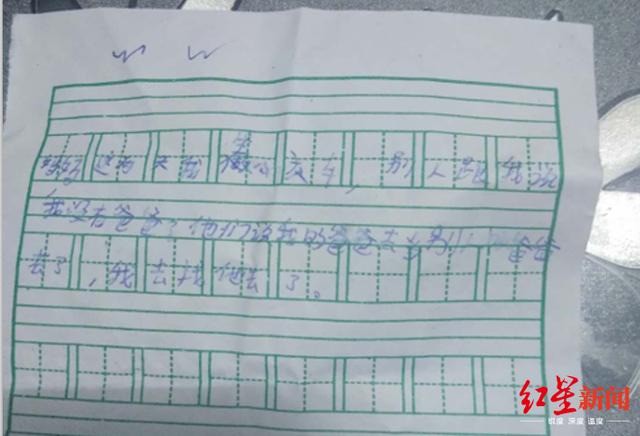 妈妈这两天我坐公交车，别人跟我说
我没有爸爸了他们说我的爸爸去当别人的爸爸
去了，我去找他去了。
红星新闻
锐度 深度 温度